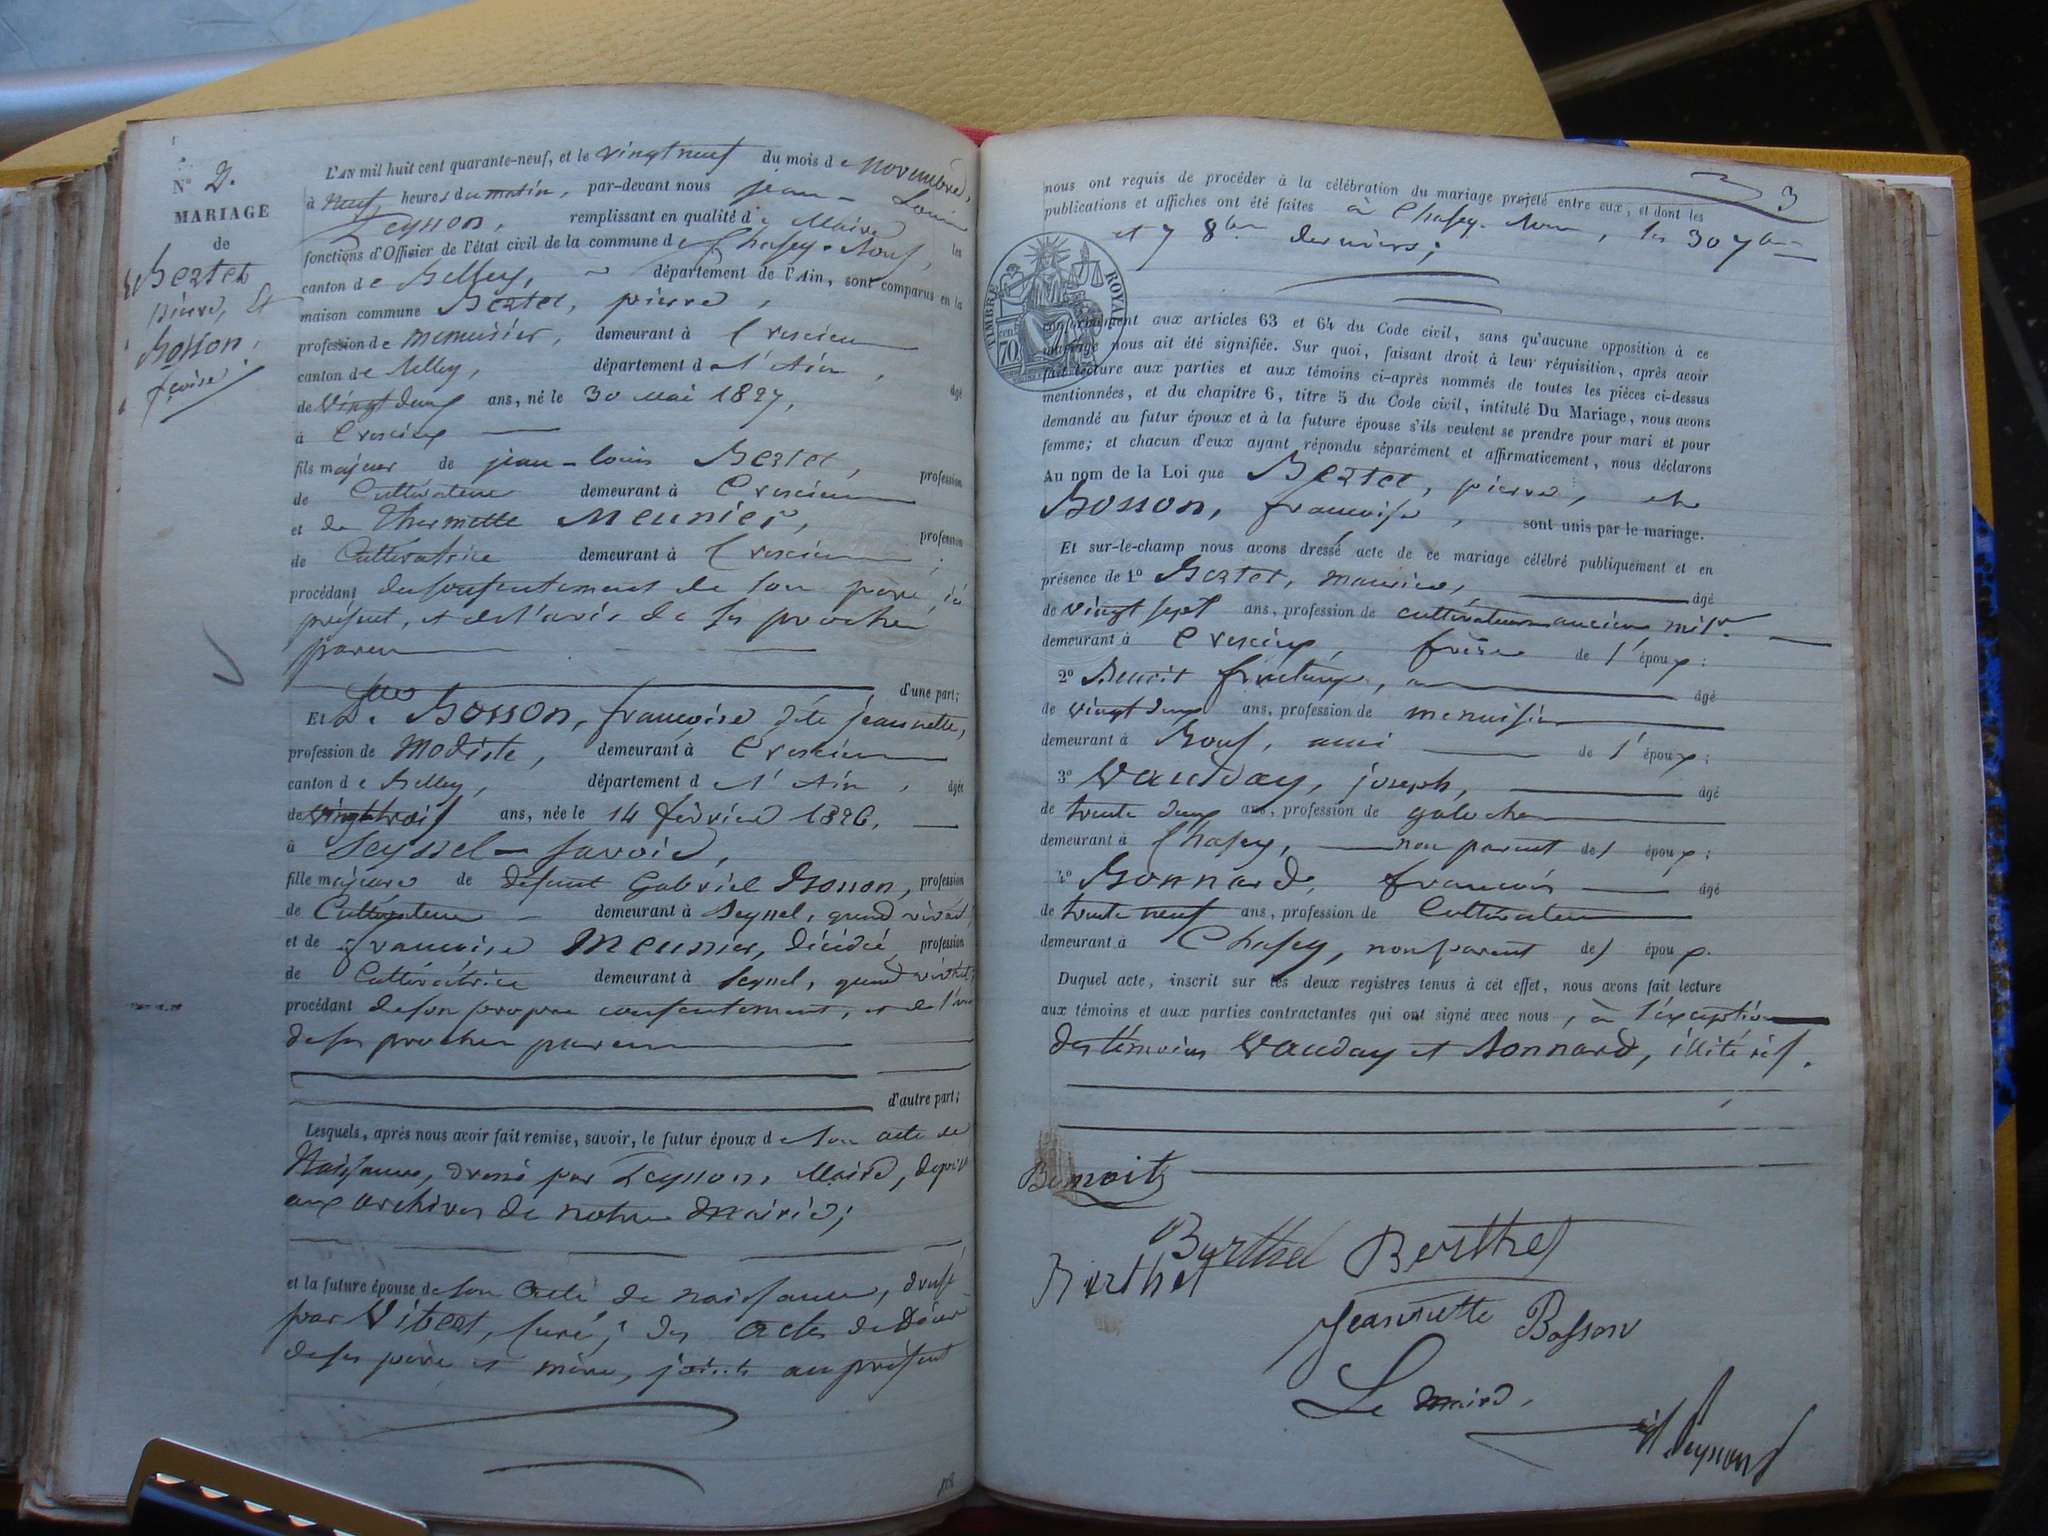 N° 2.
MARIAGE
de
Bertet
pierre, et
Bosson,
fçoise
L'AN mil huit cent quarante-neuf, et le vingt neuf du mois de novembre,
à neuf heures du matin, par-devant nous jean-Louis
Peysson, remplissant en qualité de Maire les
fonctions d'Officier de l'état civil de la commune de Chasey-Bons,
canton de Belley, département de l'Ain, sont comparus en la
maison commune Bertet, pierre,
profession de menuisier, demeurant à Cressieu
canton de Belley, département de l'Ain, âgé
de vingt deux ans, né le 30 Mai 1827,
à Cressieux
fils majeur de jean-louis Bertet, profession
de Cultivateur demeurant à Cressieu
et de Thermette Meunier, profession
de Cultivatrice demeurant à Cressieu;
procédant du consentement de son père, ici
présent, et de l'avis de ses proches
parens
d'une part;
Et Bosson, françoise dite jeannette,
profession de Modiste, demeurant à Cressieu
canton de Belley, département de l'Ain, âgée
de vingt trois ans, née le 14 février 1826,
à Seyssel-Savoie,
fille majeure de défunt Gabriel Bosson, profession
de Cultivateur demeurant à Seyssel, quand vivait;
et de françoise Meunier, décédée, profession
de Cultivatrice demeurant à Seyssel, quand vivait;
procédant de son propre consentement, et de l'avis
de ses proches parens
d'autre part;
Lesquels, après nous avoir fait remise, savoir, le futur époux de son acte de
Naissance, dressé par Peysson, Maire, déposé
aux archives de notre Mairie;
et la future épouse de son acte de naissance, dressé
par Vibert, Curé; des actes de Décès
de ses père et mère, joints au présent
3
nous ont requis de procéder à la célébration du mariage projeté entre eux, et dont les
publications et affiches ont été faites à Chasey-Bons, les 30 7bre
et 7 8bre derniers;
TIMBRE ROYAL
70 cen
conformément aux articles 63 et 64 du Code civil, sans qu'aucune opposition à ce
mariage nous ait été signifiée. Sur quoi, faisant droit à leur réquisition, après avoir
fait lecture aux parties et aux témoins ci-après nommés de toutes les pièces ci-dessus
mentionnées, et du chapitre 6, titre 5 du Code civil, intitulé Du Mariage, nous avons
demandé au futur époux et à la future épouse s'ils veulent se prendre pour mari et pour
femme; et chacun d'eux ayant répondu séparément et affirmativement, nous déclarons
Au nom de la Loi que Bertet, pierre, et
Bosson, françoise, sont unis par le mariage.
Et sur-le-champ nous avons dressé acte de ce mariage célébré publiquement et en
présence de 1° Bertet, maurice, âgé
de vingt sept ans, profession de cultivateur ancien milre
demeurant à Cressieux, frère de l'époux;
2° Benoit âgé
de vingt deux ans, profession de menuisier
demeurant à Bons, ami de l'époux;
3° Vauday, joseph, âgé
de trente deux ans, profession de galocher
demeurant à Chasey, non parent de l'époux;
4° Bonnard, françois âgé
de trente neuf ans, profession de Cultivateur
demeurant à Chasey, non parent de l'époux.
Duquel acte, inscrit sur les deux registres tenus à cet effet, nous avons fait lecture
aux témoins et aux parties contractantes qui ont signé avec nous, à l'exception
des témoins Vauday et Bonnard, illitérés.
Benoit
Berthet Berthet
Berthet
Jeannette Bosson
Le maire,
Peysson